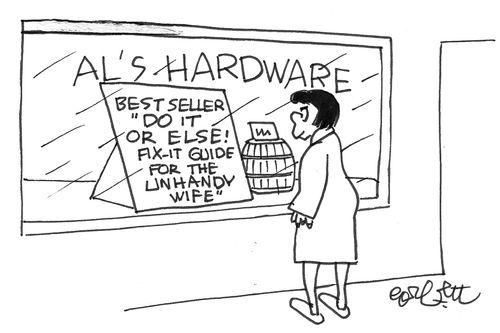 AL'S HARDWARE
BEST SELLER
"DO IT
OR ELSE!
FIX-IT GUIDE
FOR THE
UNHANDY
WIFE"